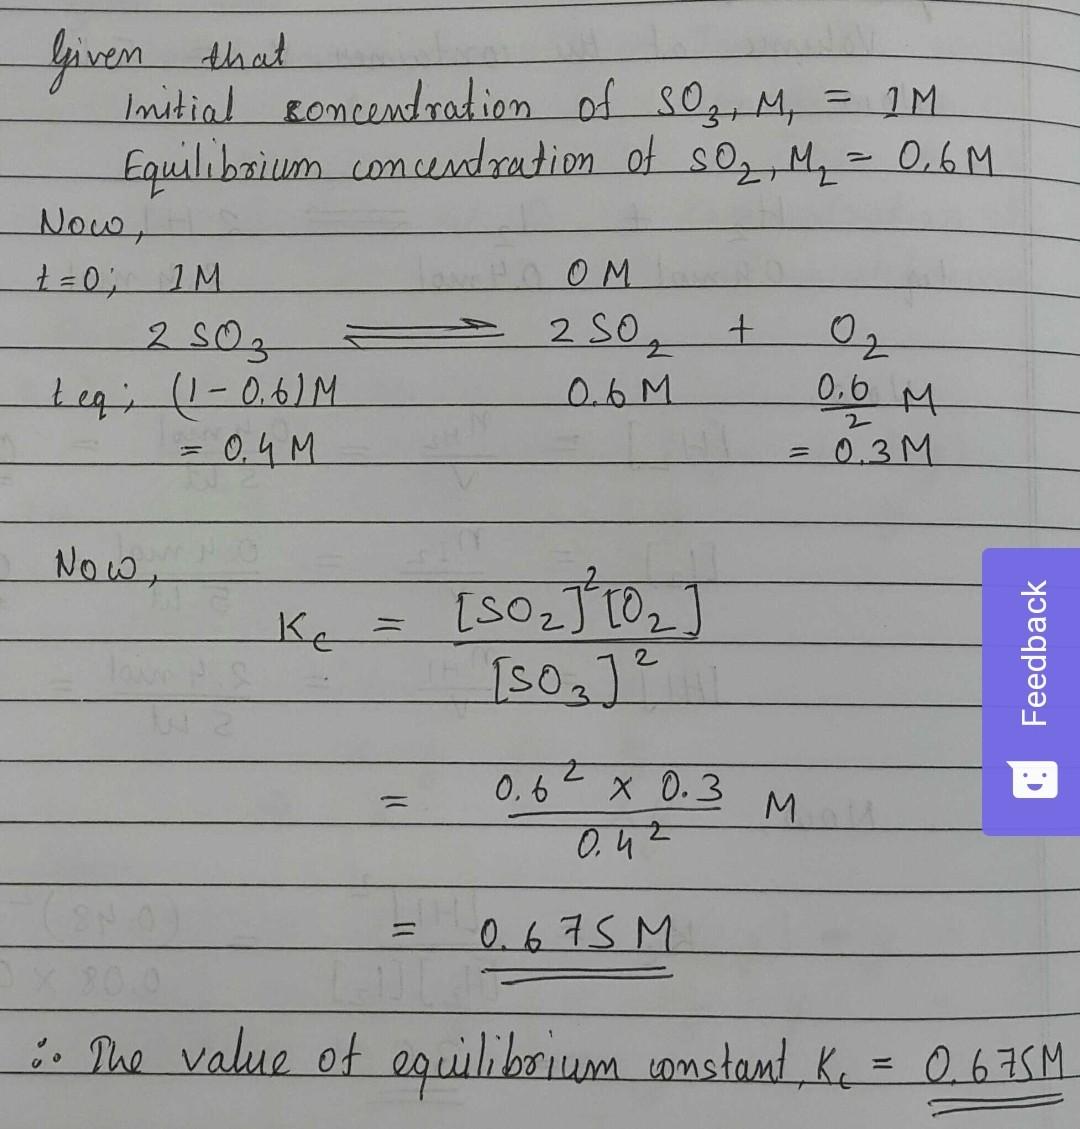 Given that
Initial concentration of SO3, M1 = 1M
Equilibrium concentration of SO2, M2 = 0.6M
Now,
t=0; 1M 0M
2 SO3 ⇌ 2 SO2 + O2
teq; (1-0.6)M 0.6M 0.6/2 M
= 0.4M = 0.3M
Now,
Kc = [SO2]²[O2] / [SO3]²
= 0.6² x 0.3 / 0.4² M
= 0.675M
∴ The value of equilibrium constant, Kc = 0.675M
Feedback